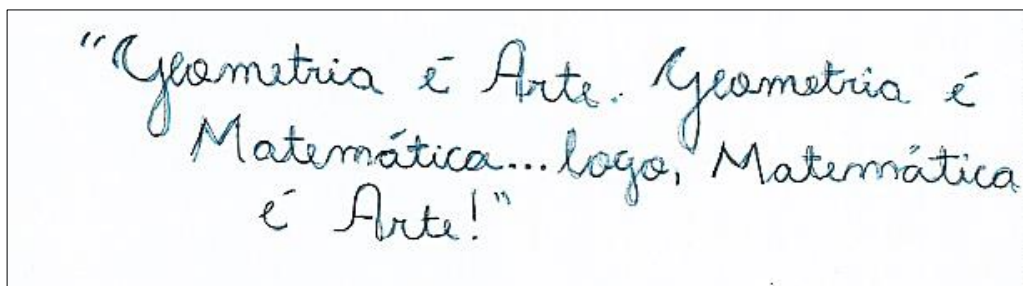 "Geometria é Arte. Geometria é
Matemática... logo, Matemática
é Arte!"